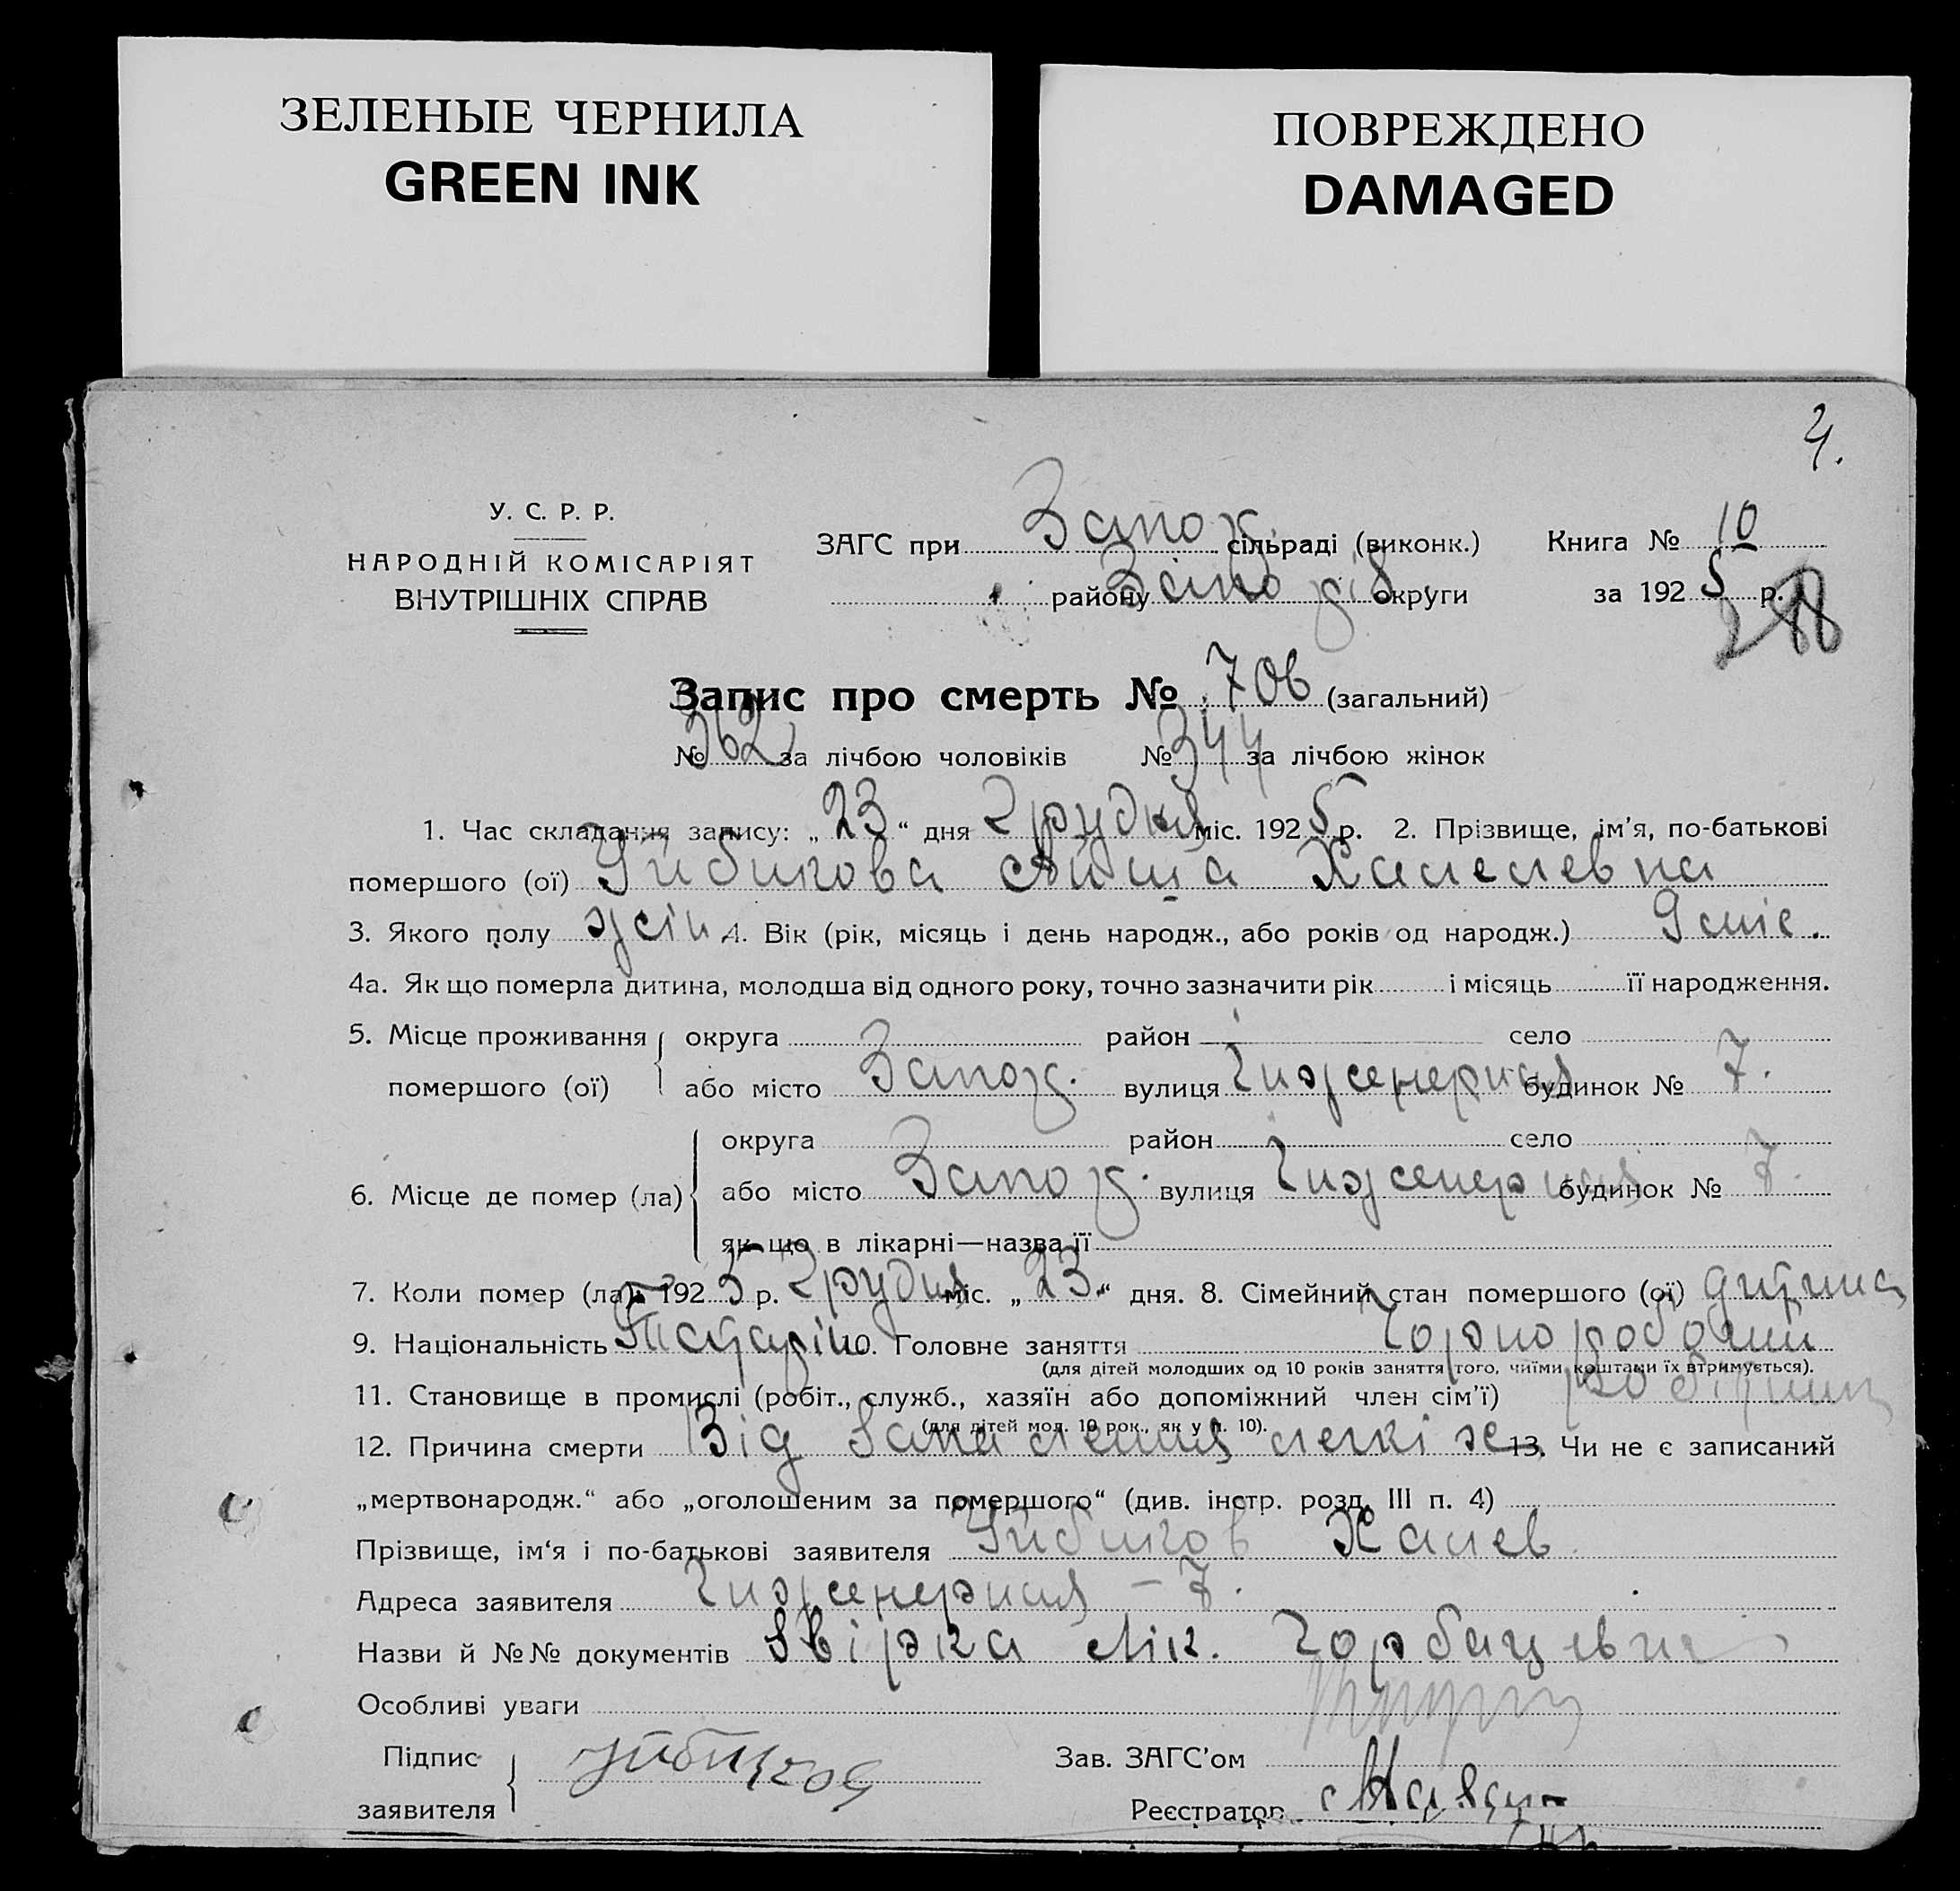 ЗЕЛЕНЫЕ ЧЕРНИЛА
GREEN INK
ПОВРЕЖДЕНО
DAMAGED
4.
У. С. Р. Р.
НАРОДНІЙ КОМІСАРІЯТ
ВНУТРІШНІХ СПРАВ
ЗАГС при Запож. сільраді (виконк.)
району Запоріз округи
Книга № 10
за 1925 р.
Запис про смерть № 706 (загальний)
№ 362 за лічбою чоловіків № 344 за лічбою жінок
1. Час складання запису: „23“ дня Грудня міс. 1925 р. 2. Прізвище, ім'я, по-батькові
помершого (ої) Айша Халелевна
3. Якого полу жін 4. Вік (рік, місяць і день народж., або років од народж.) 9 міс.
4а. Як що померла дитина, молодша від одного року, точно зазначити рік і місяць її народження.
5. Місце проживання округа район село
помершого (ої) або місто Запож. вулиця Інженерная будинок № 7.
округа район село
6. Місце де помер (ла) або місто Запож. вулиця Інженерная будинок № 7.
як що в лікарні—назва її
7. Коли помер (ла): 1925 р. Грудня міс. „23“ дня. 8. Сімейний стан помершого (ої) дитина
9. Національність Татарін 10. Головне заняття Чорноробочий
(для дітей молодших од 10 років заняття того, чиїми коштами їх втримується).
11. Становище в промислі (робіт., служб., хазяїн або допоміжний член сім'ї) робітник
(для дітей мол. 10 рок., як у п. 10).
12. Причина смерти Від запалення легкіх 13. Чи не є записаний
„мертвонародж.“ або „оголошеним за помершого“ (див. інстр. розд. III п. 4)
Прізвище, ім'я і по-батькові заявителя Халев
Адреса заявителя Інженерная – 7.
Назви й №№ документів звірка Лік. Горбацевич
Особливі уваги
Підпис
заявителя
Зав. ЗАГС'ом
Реєстратор